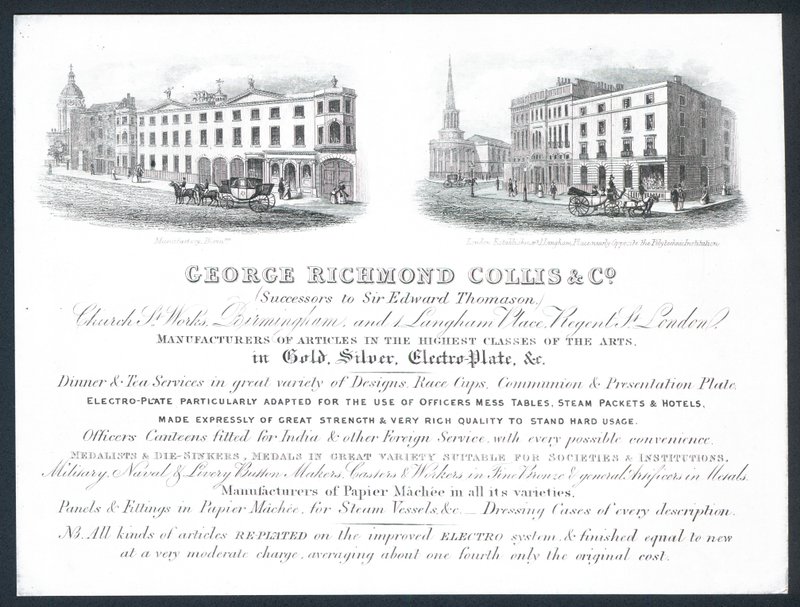 Manufactory, Birmm.
London Establishmt. 1 Langham Place, nearly opposite the Polytechnic Institution
GEORGE RICHMOND COLLIS & CO.
(Successors to Sir Edward Thomason,)
Church St. Works, Birmingham, and 1 Langham Place, Regent St. London.
MANUFACTURERS OF ARTICLES IN THE HIGHEST CLASSES OF THE ARTS,
in Gold, Silver, Electro-Plate, &c.
Dinner & Tea Services in great variety of Designs, Race Cups, Communion & Presentation Plate,
ELECTRO-PLATE PARTICULARLY ADAPTED FOR THE USE OF OFFICERS MESS TABLES, STEAM PACKETS & HOTELS,
MADE EXPRESSLY OF GREAT STRENGTH & VERY RICH QUALITY TO STAND HARD USAGE.
Officers Canteens fitted for India & other Foreign Service, with every possible convenience.
MEDALISTS & DIE-SINKERS, MEDALS IN GREAT VARIETY SUITABLE FOR SOCIETIES & INSTITUTIONS,
Military, Naval & Livery Button Makers, Casters & Workers in Fine Bronze & general Artificers in Metals.
Manufacturers of Papier Mâchée in all its varieties,
Panels & Fittings in Papier Mâchée, for Steam Vessels, &c. — Dressing Cases of every description.
NB. All kinds of articles RE-PLATED on the improved ELECTRO system, & finished equal to new
at a very moderate charge, averaging about one fourth only the original cost.